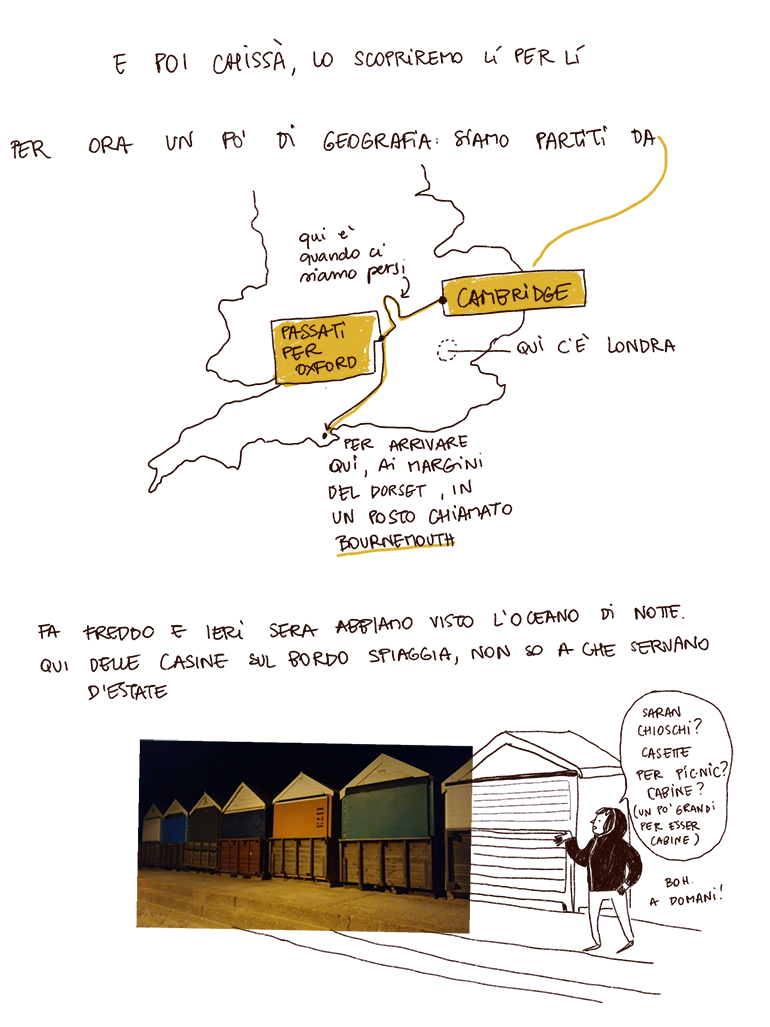 E POI CHISSÀ, LO SCOPRIREMO LÍ PER LÍ
PER ORA UN PO' DI GEOGRAFIA: SIAMO PARTITI DA
qui è
quando ci
siamo persi
CAMBRIDGE
PASSATI
PER
OXFORD
QUI C'È LONDRA
PER ARRIVARE
QUI, AI MARGINI
DEL DORSET, IN
UN POSTO CHIAMATO
BOURNEMOUTH
FA FREDDO E IERI SERA ABBIAMO VISTO L'OCEANO DI NOTTE.
QUI DELLE CASINE SUL BORDO SPIAGGIA, NON SO A CHE SERVANO
D'ESTATE
SARAN
CHIOSCHI?
CASETTE
PER PIC-NIC?
CABINE?
(UN PO' GRANDI
PER ESSER
CABINE)
BOH.
A DOMANI!